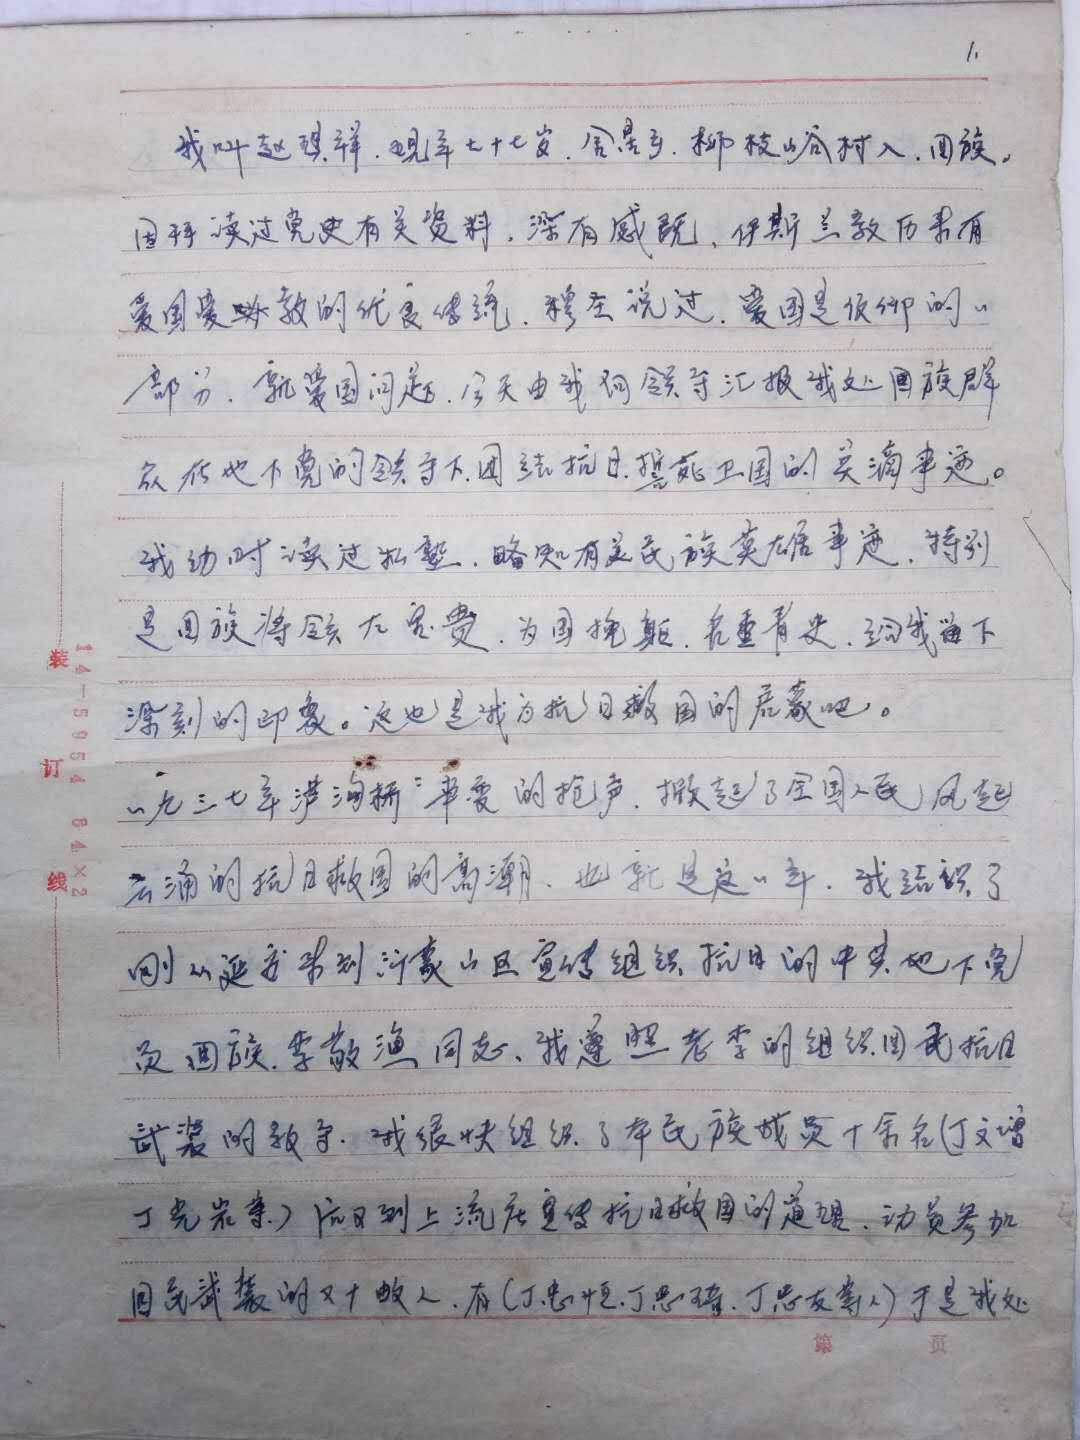 1.
我叫赵琪祥.现年七十七岁.柳枝峪村人.回族。
因拜读过党史有关资料.深有感既、伊斯兰教历来有
爱国爱教的优良传统.穆圣说过.爱国是信仰的一
部分.就爱国问题.今天由我向领导汇报我处回族群
众在地下党的领导下.团结抗日.誓死卫国的英滴事迹。
我幼时读过私塾.略知有关民族英雄事迹.特别
是回族将领左宝贵.为国捐躯.名垂青史.给我留下
深刻的印象。这也是我为抗日救国的启蒙吧。
一九三七年芦沟桥事变的枪声.掀起了全国人民风起
云涌的抗日救国的高潮.也就是这一年.我结识了
刚从延安来到沂蒙山区宣传组织抗日的中共地下党
员回族.李敬渔同志、我遵照老李的组织回民抗日
武装的教导.我很快组织了本民族成员十余名(丁文增
丁光岩等)后又到上流庄宣传抗日救国的道理.动员参加
回民武装的又十数人.有(丁忠恒.丁忠琦.丁忠友等人)于是我处
装
订
线
14-5954 84×2
第 页